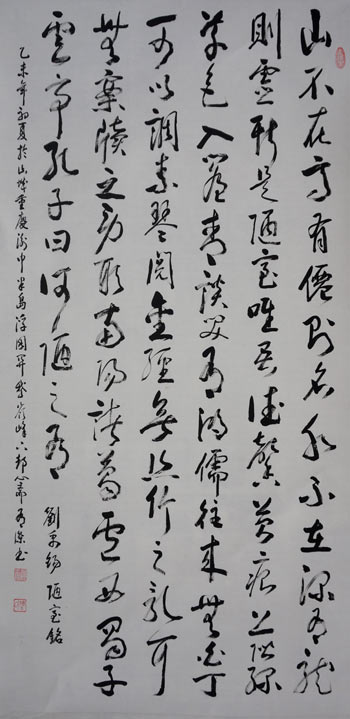 山不在高有僊則名水不在深有龍
則靈斯是陋室唯吾德馨苔痕上階綠
草色入簾青談笑有鴻儒往來無白丁
可以調素琴閱金經無絲竹之亂耳
無案牘之勞形南陽諸葛廬西蜀子
雲亭孔子曰何陋之有 劉禹錫 陋室銘
乙未年初夏於山城重慶渝中半島浮圖